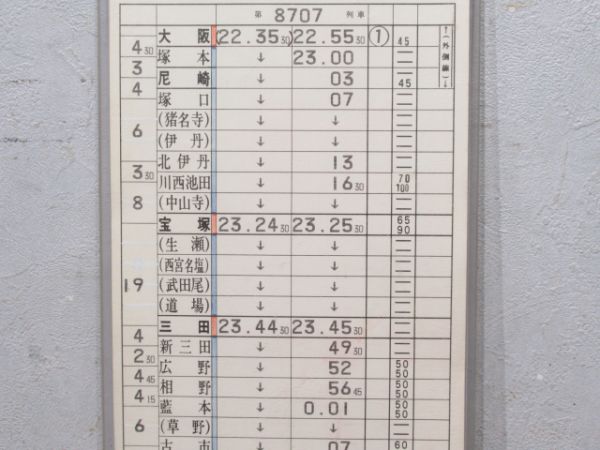 第 8707 列車
4 30 大阪 (22.35 30) 22.55 30 ① 45 ↑(外側線)↓
3 塚本 ↓ 23.00
4 尼崎 ↓ 03 45
塚口 ↓ 07
6 (猪名寺) ↓ ↓
(伊丹) ↓ ↓
3 30 北伊丹 ↓ 13
川西池田 ↓ 16 30 70 100
8 (中山寺) ↓ ↓
宝塚 23.24 30 23.25 30 65 90
(生瀬) ↓ ↓
(西宮名塩) ↓ ↓
19 (武田尾) ↓ ↓
(道場) ↓ ↓
4 三田 23.44 30 23.45 30
2 30 新三田 ↓ 49 30
4 45 広野 ↓ 52 50 50
4 15 相野 ↓ 56 45 50 50
藍本 ↓ 0.01 50 50
6 (草野) ↓ ↓
古市 ↓ 07 60